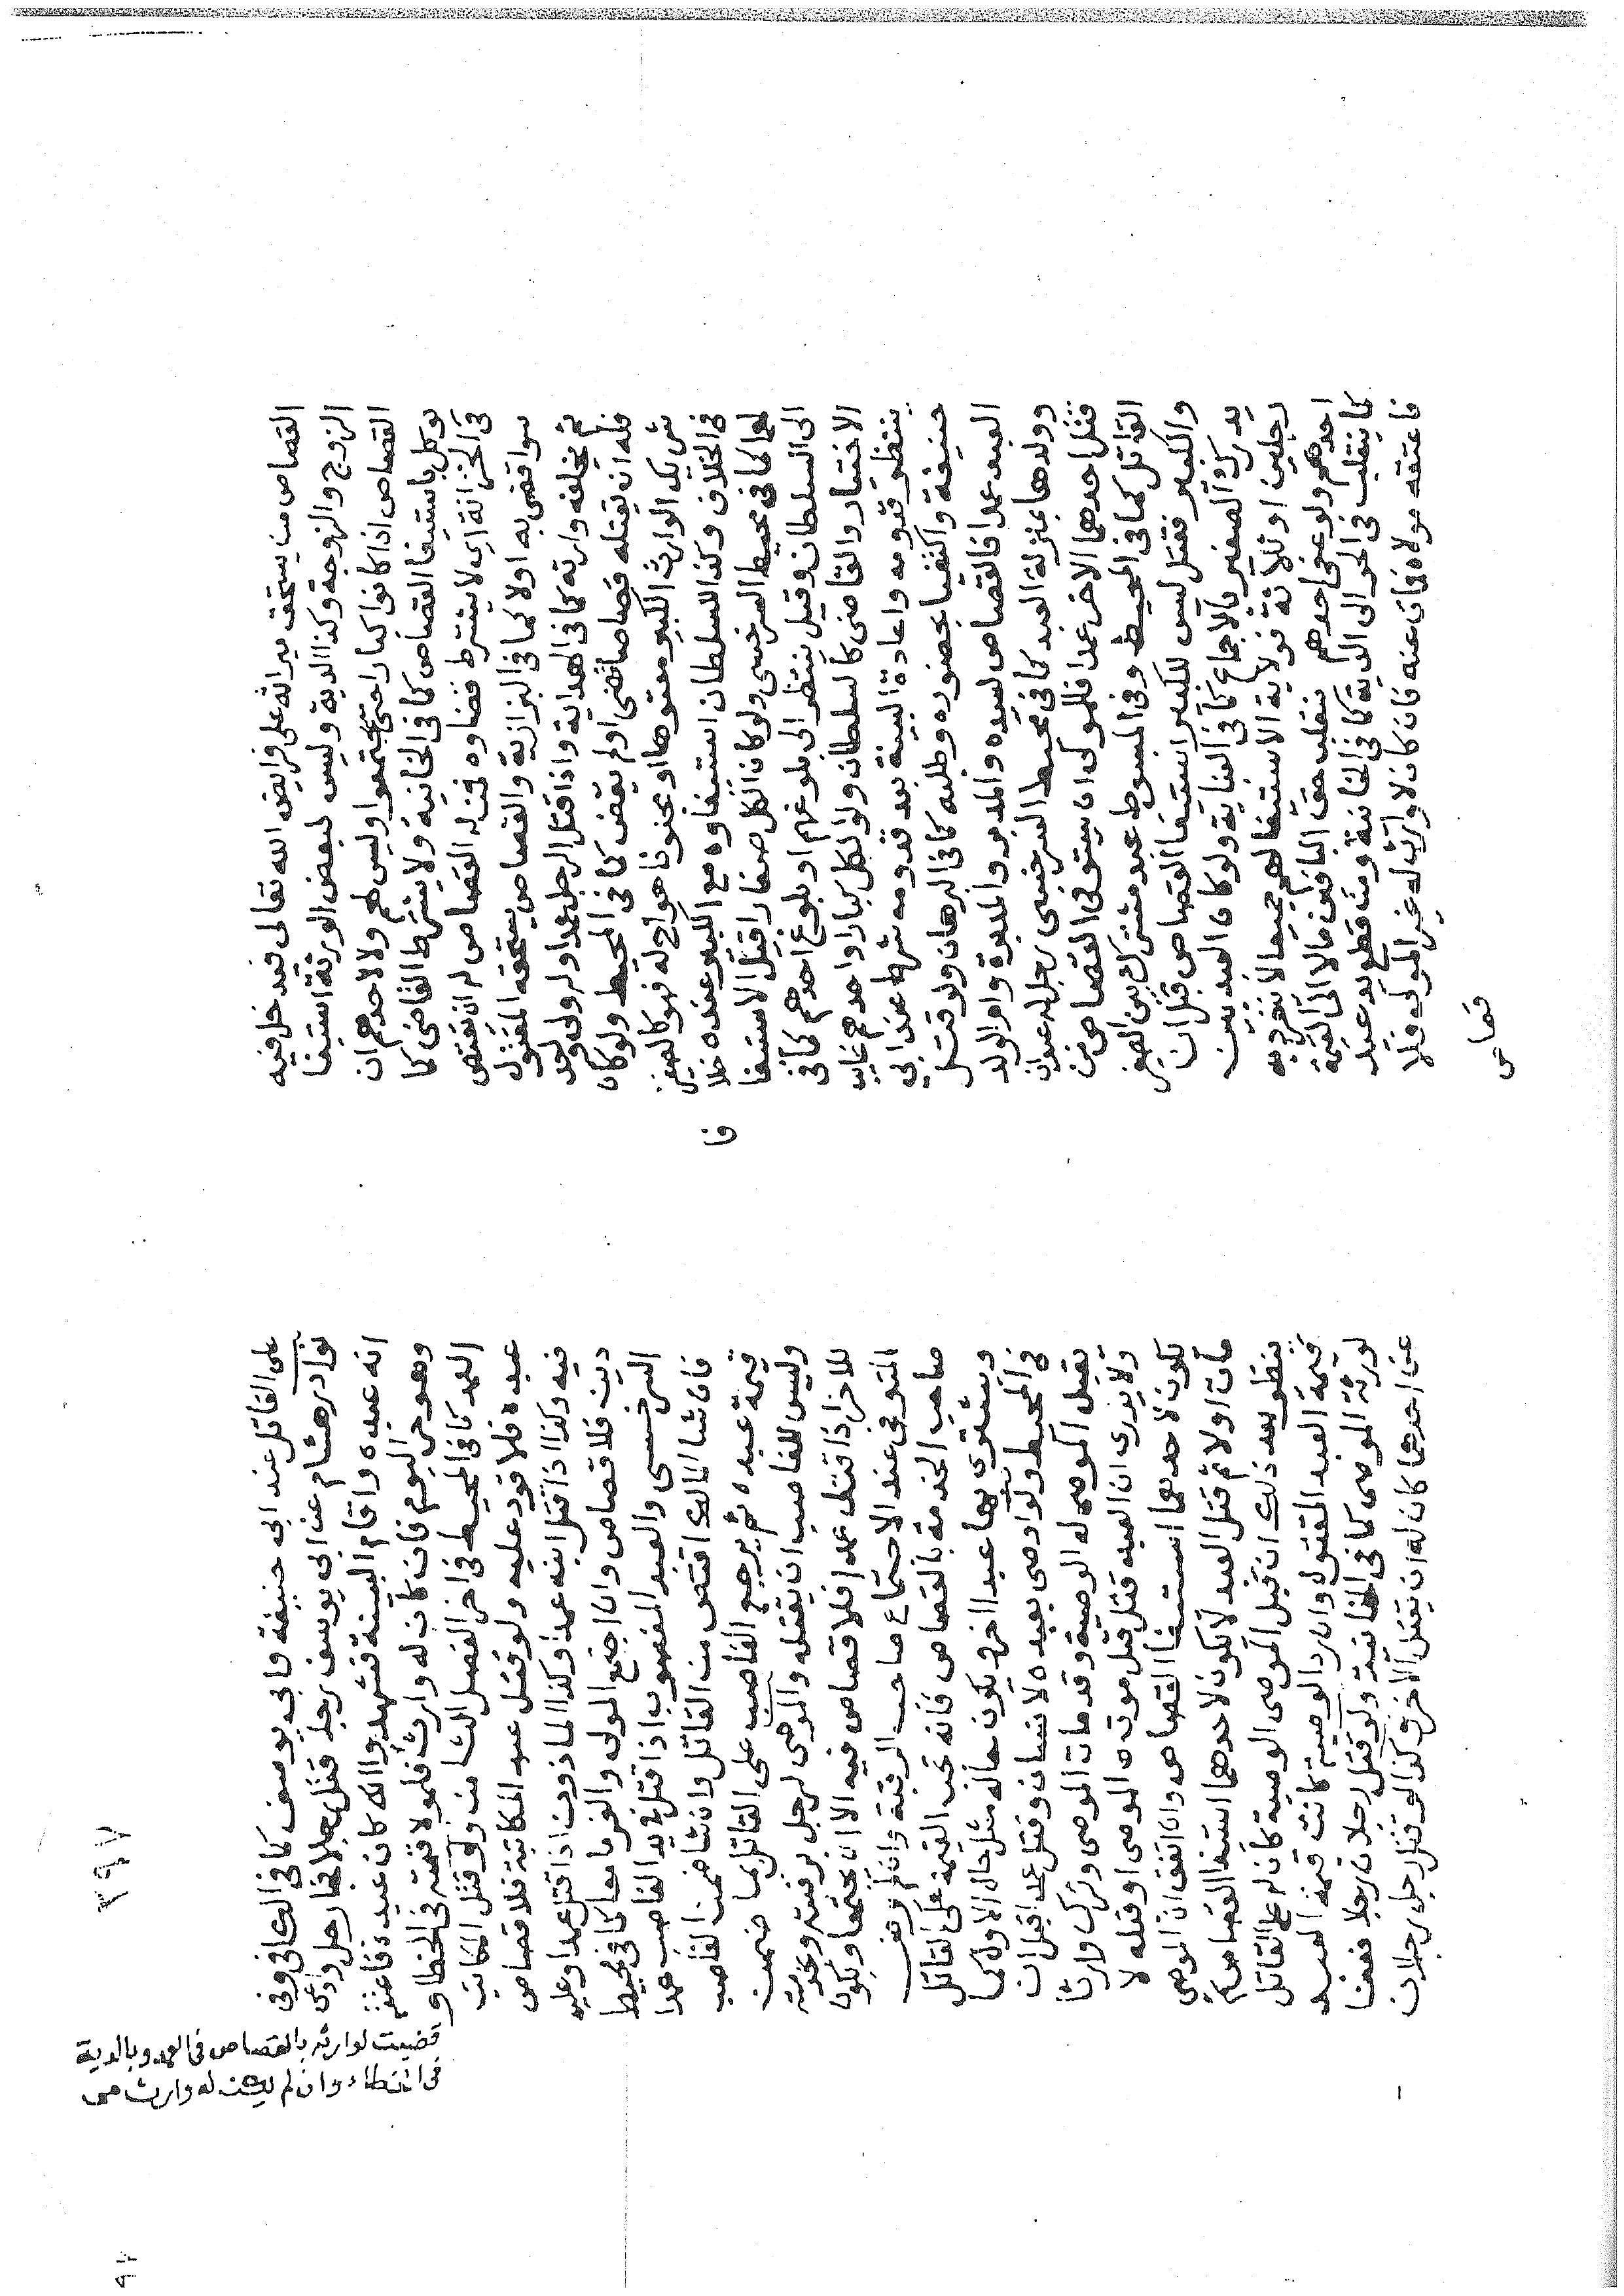 القصاص من يستحق ميراثه على فرايض الله تعالى فيدخل فيه
الزوج والزوجة وكذا الدية وليس لبعض الورثة استيفا
القصاص اذا كانوا كبارا حتى يجتمعوا وليس لهم ولا لاحدهم ان
يوكل باستيفا القصاص كما في الخانية ولا يشترط القاضي كما
في الخزانة اي لا يشترط قضاوه فمن له القصاص له ان يقتص
سوا قضى به اولا كما في البزازية والقصاص يستحقه المقتول
ثم يخلفه وارثه كما في الهداية واذا قتل الرجل عمدا وله ولي واحد
فله ان يقتله قصاصا قضى اولم يقض كما في المحيط ولو كان
شريك الوارث الكبير معتوها او مجنونا هو اخ له فهو كالصغير
في الخلاف وكذا للسلطان استيفاوه مع الكبير عنده خلا
لهما كما في محيط السرخسي ولو كان الكل صغارا قيل الاستيفا
الى السلطان وقيل ينتظر الى بلوغهم او بلوغ احدهم كما في
الاختيار والقاضي كالسلطان ولو الكل كبارا واحدهم غايب
ينتظر قدومه واعادة البينة بعد قدومه شرط عند ابي
حنيفة واكتفيا بحضوره وطلبه كما في البرهان ولو قتل
العبد عمدا فالقصاص لسيده والمدبر والمدبرة وام الولد
وولدها بمنزلة العبد كما في محيط السرخسي رجل له عبدان
قتل احدهما الاخر عمدا فللمولى ان يستوفي القصاص من
القاتل كما في المحيط وفي المبسوط عبد مشترك بين الصغير
والكبير فقتل ليس للكبير استيفا القصاص قبل ان
يدرك الصغير بالاجماع كما في العناية ولو كان العبد بين
رجلين او ثلاثة فولاية الاستيفا لهم جميعا لا ينفرد به
احدهم ولو عفى احدهم ينقلب حق الباقين مالا الى القيمة
كما ينقلب في الحر الى الدية كما في الخانية ومن قطع يد عبد
فاعتقه مولاه فمات عنه فان كان لا وارث له غير المولى فله
قصاص
فا
على القاتل عند ابي حنيفة وابي يوسف كما في الكافي وفي
نوادر هشام عن ابي يوسف رجل قتل رجلا فجا رجل وادعى
انه عبده واقام البينة فشهدوا انه كان عبده فاعتقه
وهو حر اليوم فان كان له وارث فلمولاه قيمته في الخطا و
العمد كما في المحيط في اخر الفصل الثامن ولو قتل المكاتب
عبده فلا قود عليه ولو قتل عبد المكاتبة فلا قصاص
فيه وكذا اذا قتل ابنه عمدا وكذا الماذون اذا قتل عمدا وعليه
دين فلا قصاص وان اجتمع المولى والغرما معا كما في محيط
السرخسي والعبد المغصوب اذا قتل في يد الغاصب عمدا
فان شا المالك اقتص من القاتل وان شا ضمن الغاصب
قيمة عبده ثم يرجع الغاصب على القاتل بما ضمن
وليس للغاصب ان يقتله والموصى لرجل برقبته وبخدمته
للاخر اذا قتل عمدا فلا قصاص فيه الا ان يجتمعا ويكون
المتوفي عند الاجتماع صاحب الرقبة وان لم يرض
صاحب الخدمة بالقصاص فانه تجب القيمة على القاتل
ويشترى بها عبدا اخر يكون حاله مثل حال الاول كما
في المحيط ولو اوصى بعبده لانسان وقتل عمدا قبل ان
يقبل الموصى له الوصية وقد مات الموصي وترك وارثا
ولا يدرى ان العبد قتل قبل موت الموصي او قتله لا
يكون لاحدهما استيفا القصاص وان اتفق ان الموصي
مات اولا ثم قتل العبد لا يكون لاحدهما استيفا القصاص ثم
ينظر بعد ذلك ان قبل الموصى الوصية كان له على القاتل
قيمة العبد المقتول وان رد الوصية كانت قيمة العبد
لورثة الموصي كما في الخانية ولو قتل رجلان رجلا فعفا
عن احدهما كان له ان يقتل الاخر وكذا لو قتل رجل رجلان
قضيت لوارثه بالقصاص في العمد وبالدية
في الخطاء وان لم يكن له وارث
٣٩٧